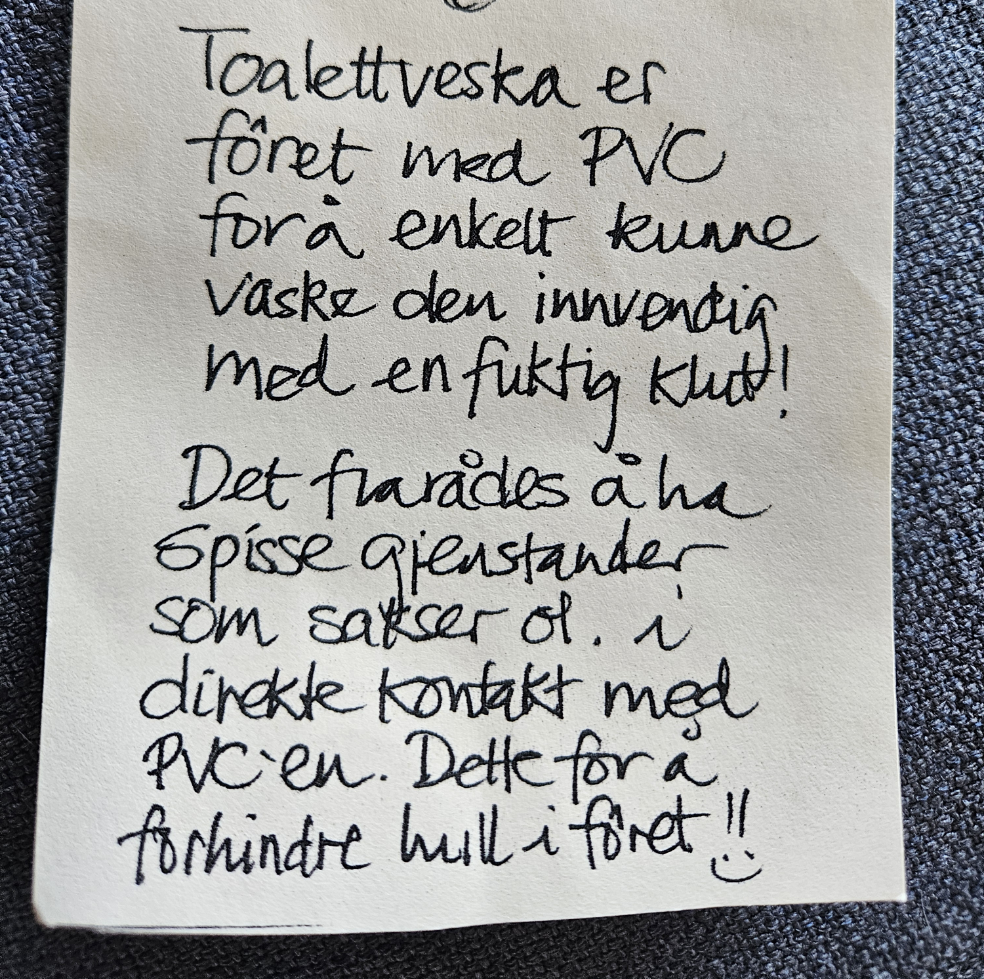 Toalettveska er
fôret med PVC
for å enkelt kunne
vaske den innvendig
med en fuktig klut!
Det frarådes å ha
spisse gjenstander
som sakser ol. i
direkte kontakt med
PVC'en. Dette for å
forhindre hull i fôret!!